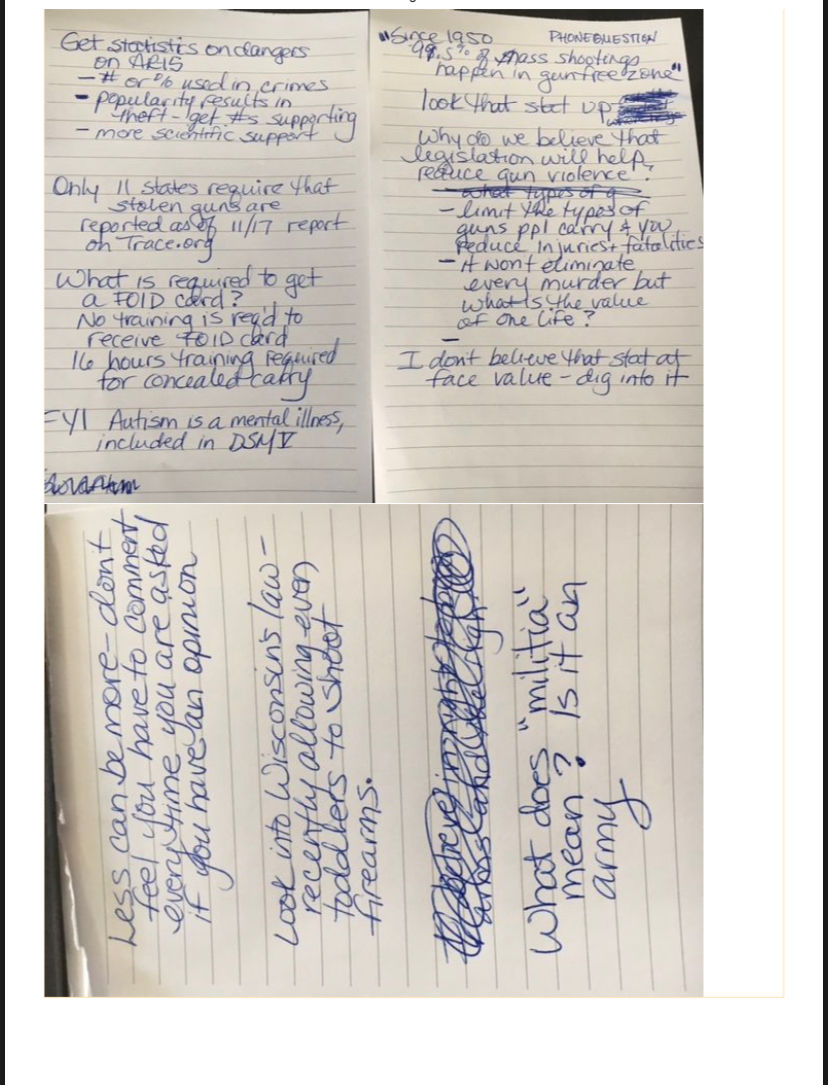 Get statistics on dangers
on AR15
- # or % used in crimes
- popularity results in
theft - get #s supporting
- more scientific support
Only 11 states require that
stolen guns are
reported as of 11/17 report
on Trace.org
What is required to get
a FOID card?
No training is req'd to
receive FOID card
16 hours training required
for concealed carry
FYI Autism is a mental illness,
included in DSM V
"Since 1950 PHONE QUESTION
98.5% of mass shootings
happen in gun free zone"
look that stat up
Why do we believe that
legislation will help
reduce gun violence?
what types of g
- limit the types of
guns ppl carry & you
reduce injuries + fatalities
- it won't eliminate
every murder but
what is the value
of one life?
-
I don't believe that stat at
face value - dig into it
Less can be more - don't
feel you have to comment
every time you are asked
if you have an opinion
Look into Wisconsin's law -
recently allowing even
toddlers to shoot
firearms.
What does "militia"
mean? Is it an
army